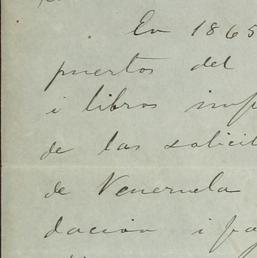 En 1865
puertos del
i libros imp
de las solicit
de Venezuela
dacion i pa